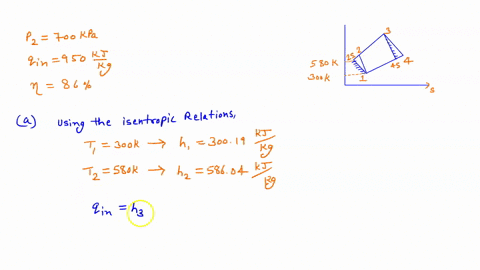 P2 = 700 kPa
qin = 950 kJ/kg
η = 86%
3
580K
2s 2
4s 4
300K
1
s
(a) Using the isentropic Relations,
T1 = 300K → h1 = 300.19 kJ/kg
T2 = 580K → h2 = 586.04 kJ/kg
qin = h3